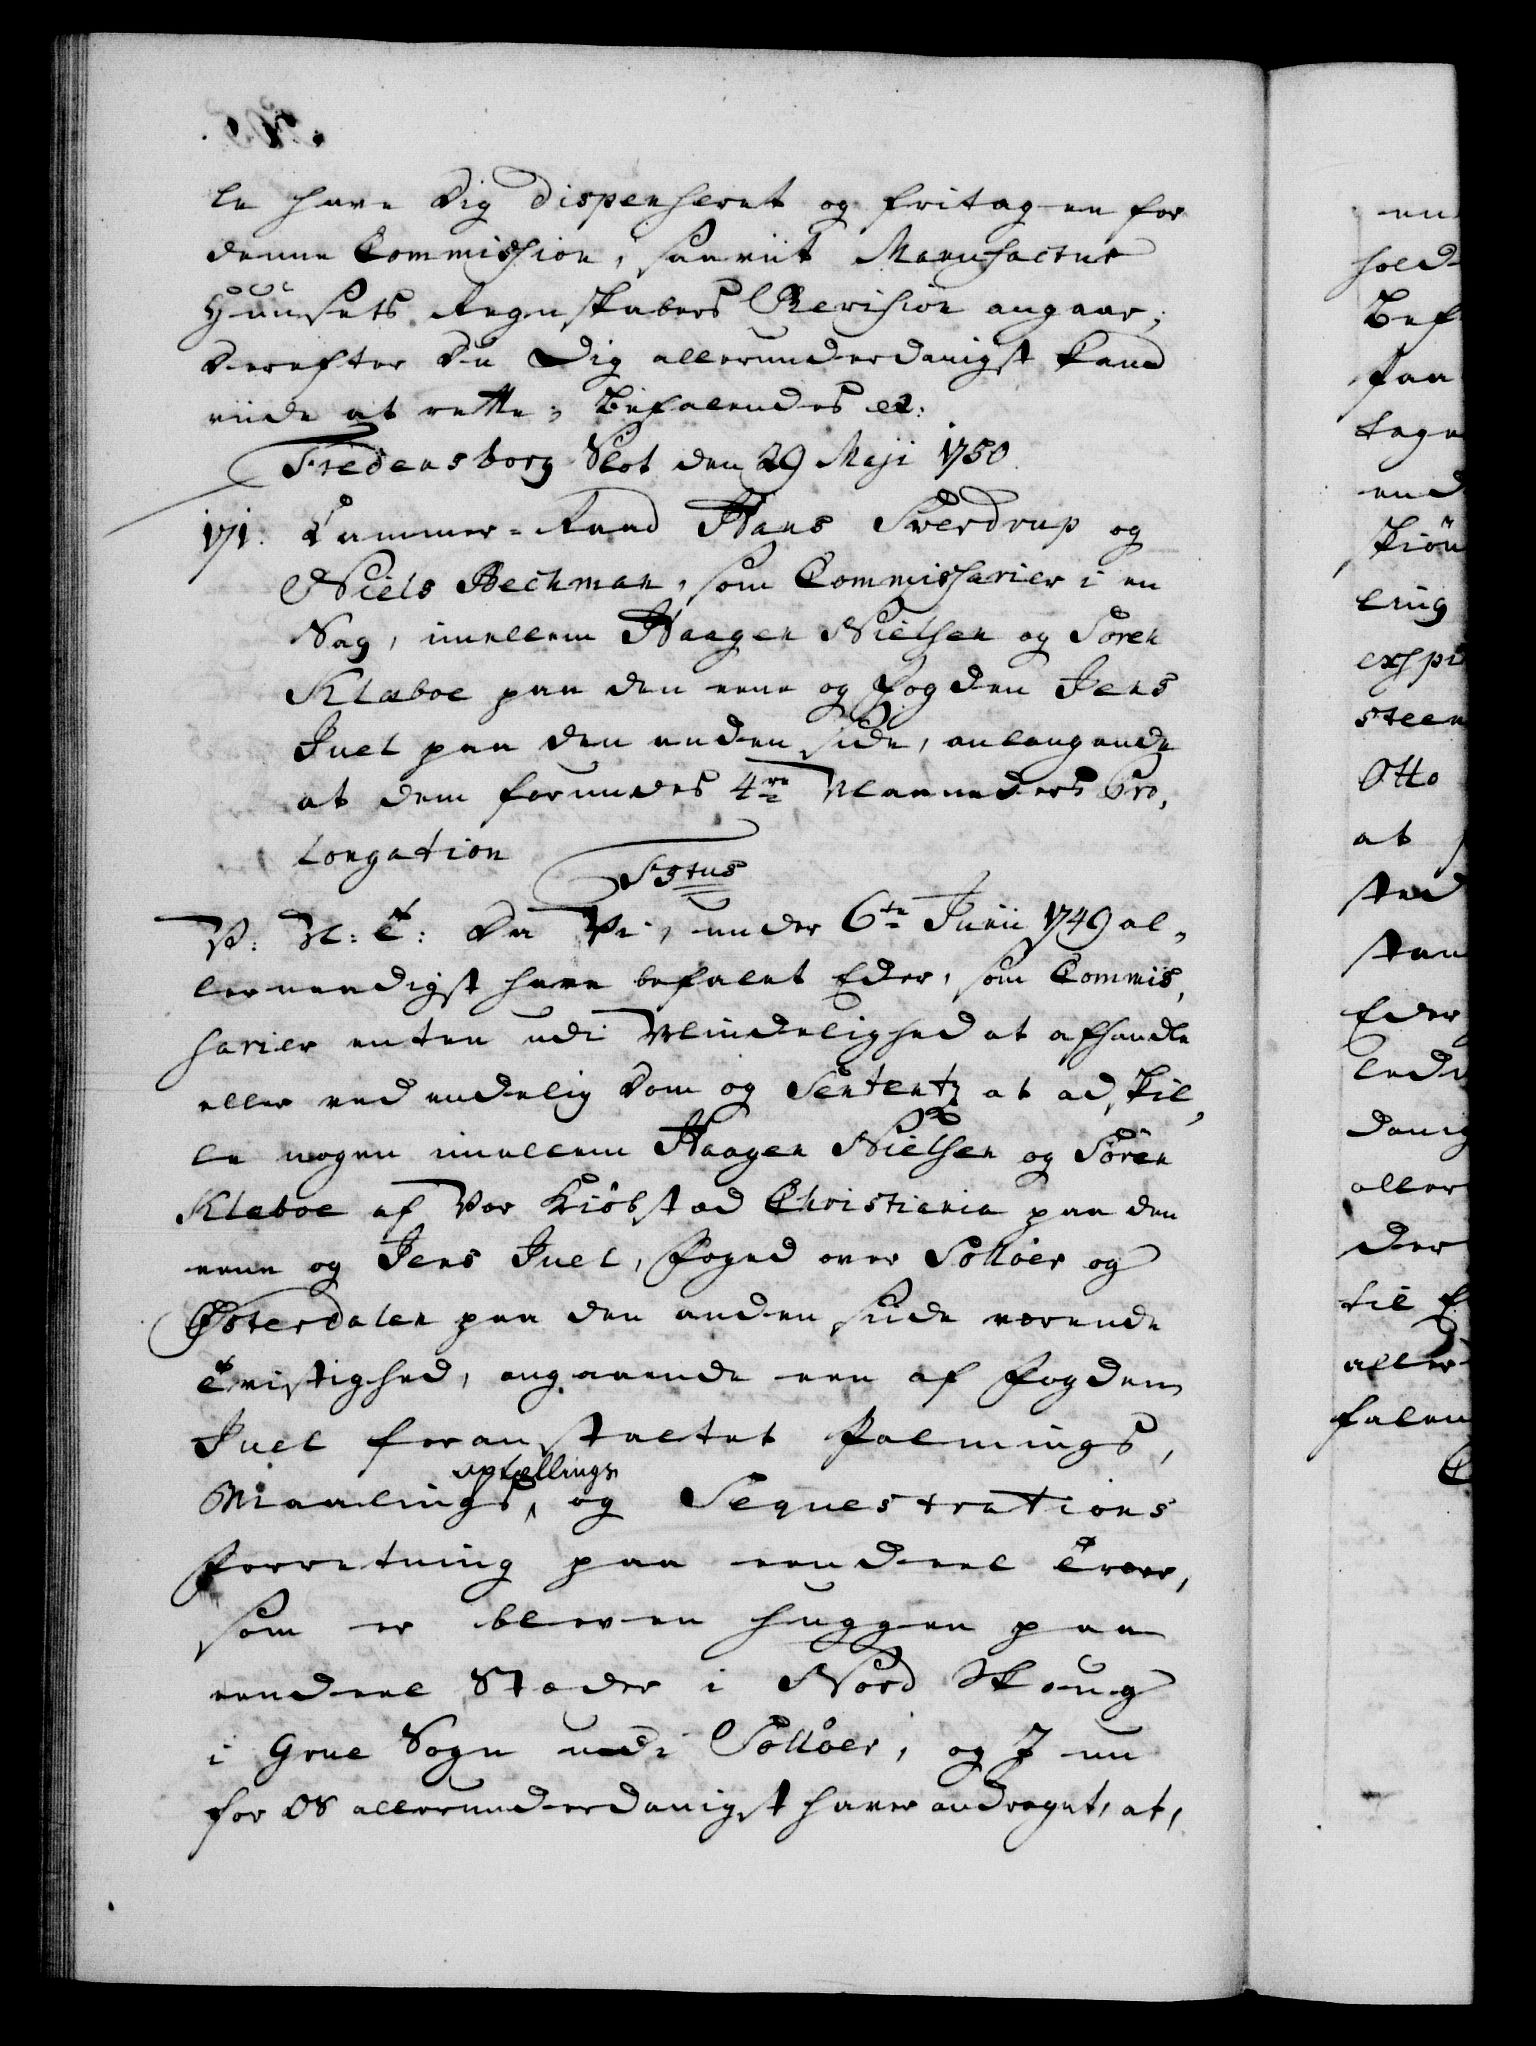 le have Dig dispenseret og fritagen for
denne Commission, saaviit Manufactur
Huusets Regnskabers Revision angaar;
Derefter Du Dig allerunderdanigst kand
viide at rette; Befalendes etc:
Fredensborg Slot den 29 Maji 1750.
171. Cammer-Raad Hans Sverdrup og
Niels Bechman, som Commissarier i en
Sag, imellem Haagen Nielsen og Sören
Klæboe paa den eene og Fogden Jens
Juel paa den anden Side, anlangende
at dem forundes 4re Maaneders Pro,
longation
F 5tus
V: N: T: Da Vi, under 6te Junii 1749 al,
lernaadigst have befalet Eder, som Commis,
sarier enten udi Mindelighed at afhandle
eller ved endelig Dom og Sententz at adskil,
le nogen imellem Haagen Nielsen og Sören
Klæboe af Vor Kiöbstad Christiania paa den
eene og Jens Juel, Foged over Sollöer og
Østerdalen paa den anden Side værende
Tvistighed, angaaende een af Fogden
Juel foranstaltet Palmings,
Maalings, optællings og Sequestrations
Forretning paa eendeel Træer,
som er bleven huggen paa
eendeel Stæder i Nord Skoug
i Grue Sogn udi Sollöer, og I nu
for OS allerunderdanigst haver andraget, at,
en
hold
Bef
paa
tage
end
skiön
ling
exspe
steen
Otto
at
sted
stan
Eder
ledi
danig
aller
der
til E
aller
falen